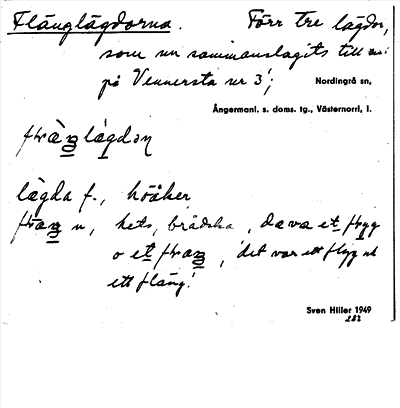 Flänglägdorna. Förr tre lägdor,
som nu sammanslagits till en:
på Vennersta nr 3;
Nordingrå sn,
Ångermanl. s. doms. tg., Västernorrl. l.
lägda f., höåker
n, hets, brådska, de va et
o et, 'det var ett flyg o
ett fläng!'
Sven Hiller 1949